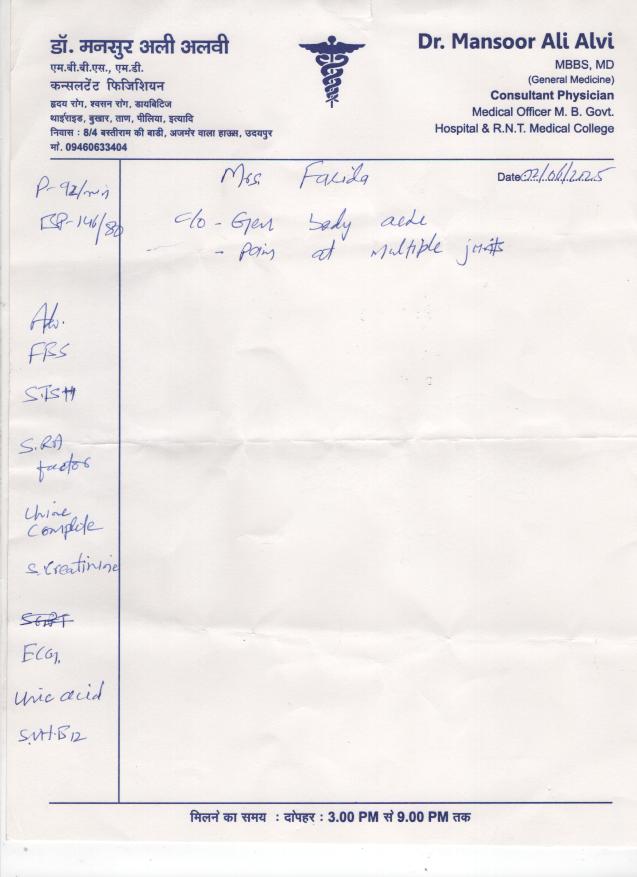 डॉ. मनसुर अली अलवी
एम.बी.बी.एस., एम.डी.
कन्सलटेंट फिजिशियन
हृदय रोग, श्वसन रोग, डायबिटिज
थाईराइड, बुखार, ताण, पीलिया, इत्यादि
निवास : 8/4 बस्तीराम की बाडी, अजमेर वाला हाऊस, उदयपुर
मो. 09460633404
Dr. Mansoor Ali Alvi
MBBS, MD
(General Medicine)
Consultant Physician
Medical Officer M. B. Govt.
Hospital & R.N.T. Medical College
Mrs. Farida
Date 02/06/2025
P-92/min
BP-146/80
c/o - Gen body ache
- Pain at multiple joints
Adv.
FBS
S.TSH
S.RA
factor
Urine
Complete
S.Creatinine
ECG,
Uric acid
S.Vit.B12
मिलने का समय : दोपहर : 3.00 PM से 9.00 PM तक